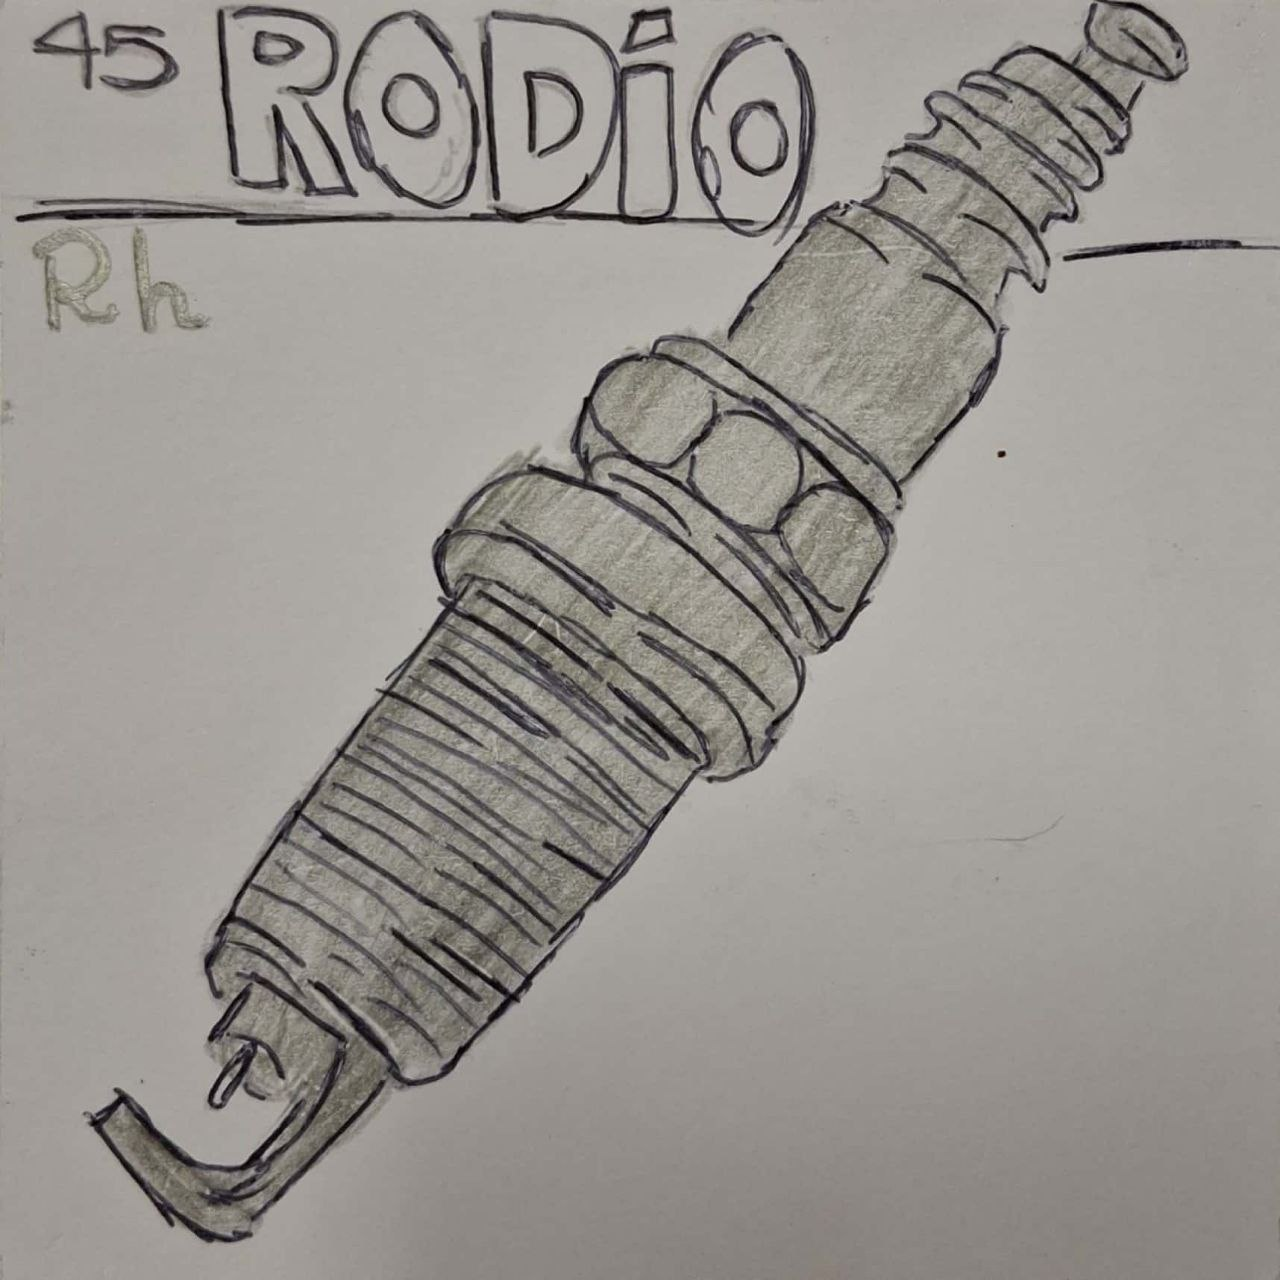 45 RODiO
Rh